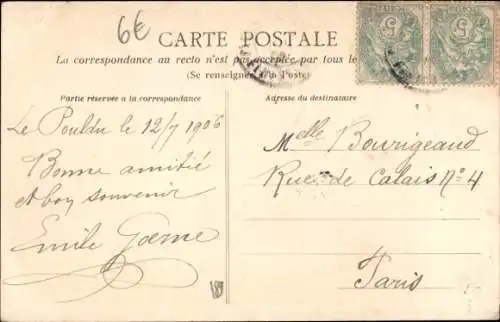 6€
CARTE POSTALE
La correspondance au recto n'est pas acceptée par tous le
(Se renseigner à la Poste)
Partie réservée à la correspondance
Adresse du destinataire
Le Pouldu le 12/7 1906
Bonne amitié
et bon souvenir
Emile
Melle Bourigeaud
Rue de Calais No 4
Paris